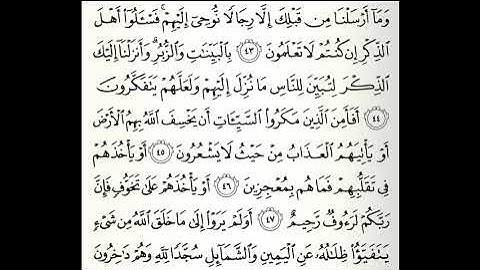 وَمَآ أَرْسَلْنَا مِن قَبْلِكَ إِلَّا رِجَالًا نُّوحِىٓ إِلَيْهِمْ ۚ فَسْـَٔلُوٓا۟ أَهْلَ
ٱلذِّكْرِ إِن كُنتُمْ لَا تَعْلَمُونَ ٤٣ بِٱلْبَيِّنَـٰتِ وَٱلزُّبُرِ ۗ وَأَنزَلْنَآ إِلَيْكَ
ٱلذِّكْرَ لِتُبَيِّنَ لِلنَّاسِ مَا نُزِّلَ إِلَيْهِمْ وَلَعَلَّهُمْ يَتَفَكَّرُونَ
٤٤ أَفَأَمِنَ ٱلَّذِينَ مَكَرُوا۟ ٱلسَّيِّـَٔاتِ أَن يَخْسِفَ ٱللَّهُ بِهِمُ ٱلْأَرْضَ
أَوْ يَأْتِيَهُمُ ٱلْعَذَابُ مِنْ حَيْثُ لَا يَشْعُرُونَ ٤٥ أَوْ يَأْخُذَهُمْ
فِى تَقَلُّبِهِمْ فَمَا هُم بِمُعْجِزِينَ ٤٦ أَوْ يَأْخُذَهُمْ عَلَىٰ تَخَوُّفٍ فَإِنَّ
رَبَّكُمْ لَرَءُوفٌ رَّحِيمٌ ٤٧ أَوَلَمْ يَرَوْا۟ إِلَىٰ مَا خَلَقَ ٱللَّهُ مِن شَىْءٍ
يَتَفَيَّؤُا۟ ظِلَـٰلُهُۥ عَنِ ٱلْيَمِينِ وَٱلشَّمَآئِلِ سُجَّدًا لِّلَّهِ وَهُمْ دَٰخِرُونَ